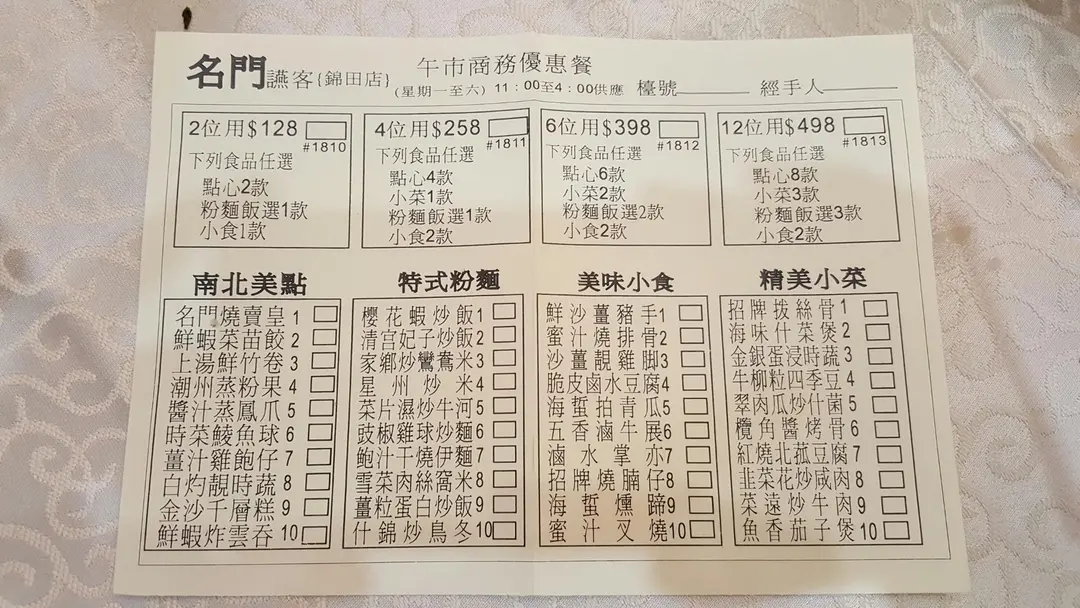 名門讌客{錦田店} 午市商務優惠餐
(星期一至六) 11:00至4:00供應 檯號 經手人
2位用$128
#1810
下列食品任選
點心2款
粉麵飯選1款
小食1款
4位用$258
#1811
下列食品任選
點心4款
小菜1款
粉麵飯選1款
小食2款
6位用$398
#1812
下列食品任選
點心6款
小菜2款
粉麵飯選2款
小食2款
12位用$498
#1813
下列食品任選
點心8款
小菜3款
粉麵飯選3款
小食2款
南北美點
名門燒賣皇1
鮮蝦菜苗餃2
上湯鮮竹卷3
潮州蒸粉果4
醬汁蒸鳳爪5
時菜鯪魚球6
薑汁雞飽仔7
白灼靚時蔬8
金沙千層糕9
鮮蝦炸雲吞10
特式粉麵
櫻花蝦炒飯1
清宮妃子炒飯2
家鄉炒鴛鴦米3
星州炒米4
菜片濕炒牛河5
豉椒雞球炒麵6
鮑汁干燒伊麵7
雪菜肉絲窩米8
薑粒蛋白炒飯9
什錦炒烏冬10
美味小食
鮮沙薑豬手1
蜜汁燒排骨2
沙薑靚雞脚3
脆皮鹵水豆腐4
海蜇拍青瓜5
五香滷牛展6
滷水掌亦7
招牌燒腩仔8
海蜇燻蹄9
蜜汁叉燒10
精美小菜
招牌拨絲骨1
海味什菜煲2
金銀蛋浸時蔬3
牛柳粒四季豆4
翠肉瓜炒什菌5
欖角醬烤骨6
紅燒北菰豆腐7
韭菜花炒咸肉8
菜遠炒牛肉9
魚香茄子煲10